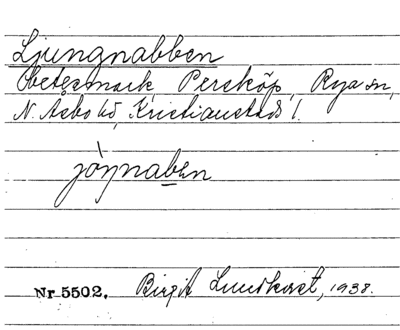 Ljungnabben
Betesmark, Persköp, Rya sn,
N. Åsbo hd, Kristianstads l.
jöŋnaben
Nr 5502. Birgit Lundkvist, 1938.